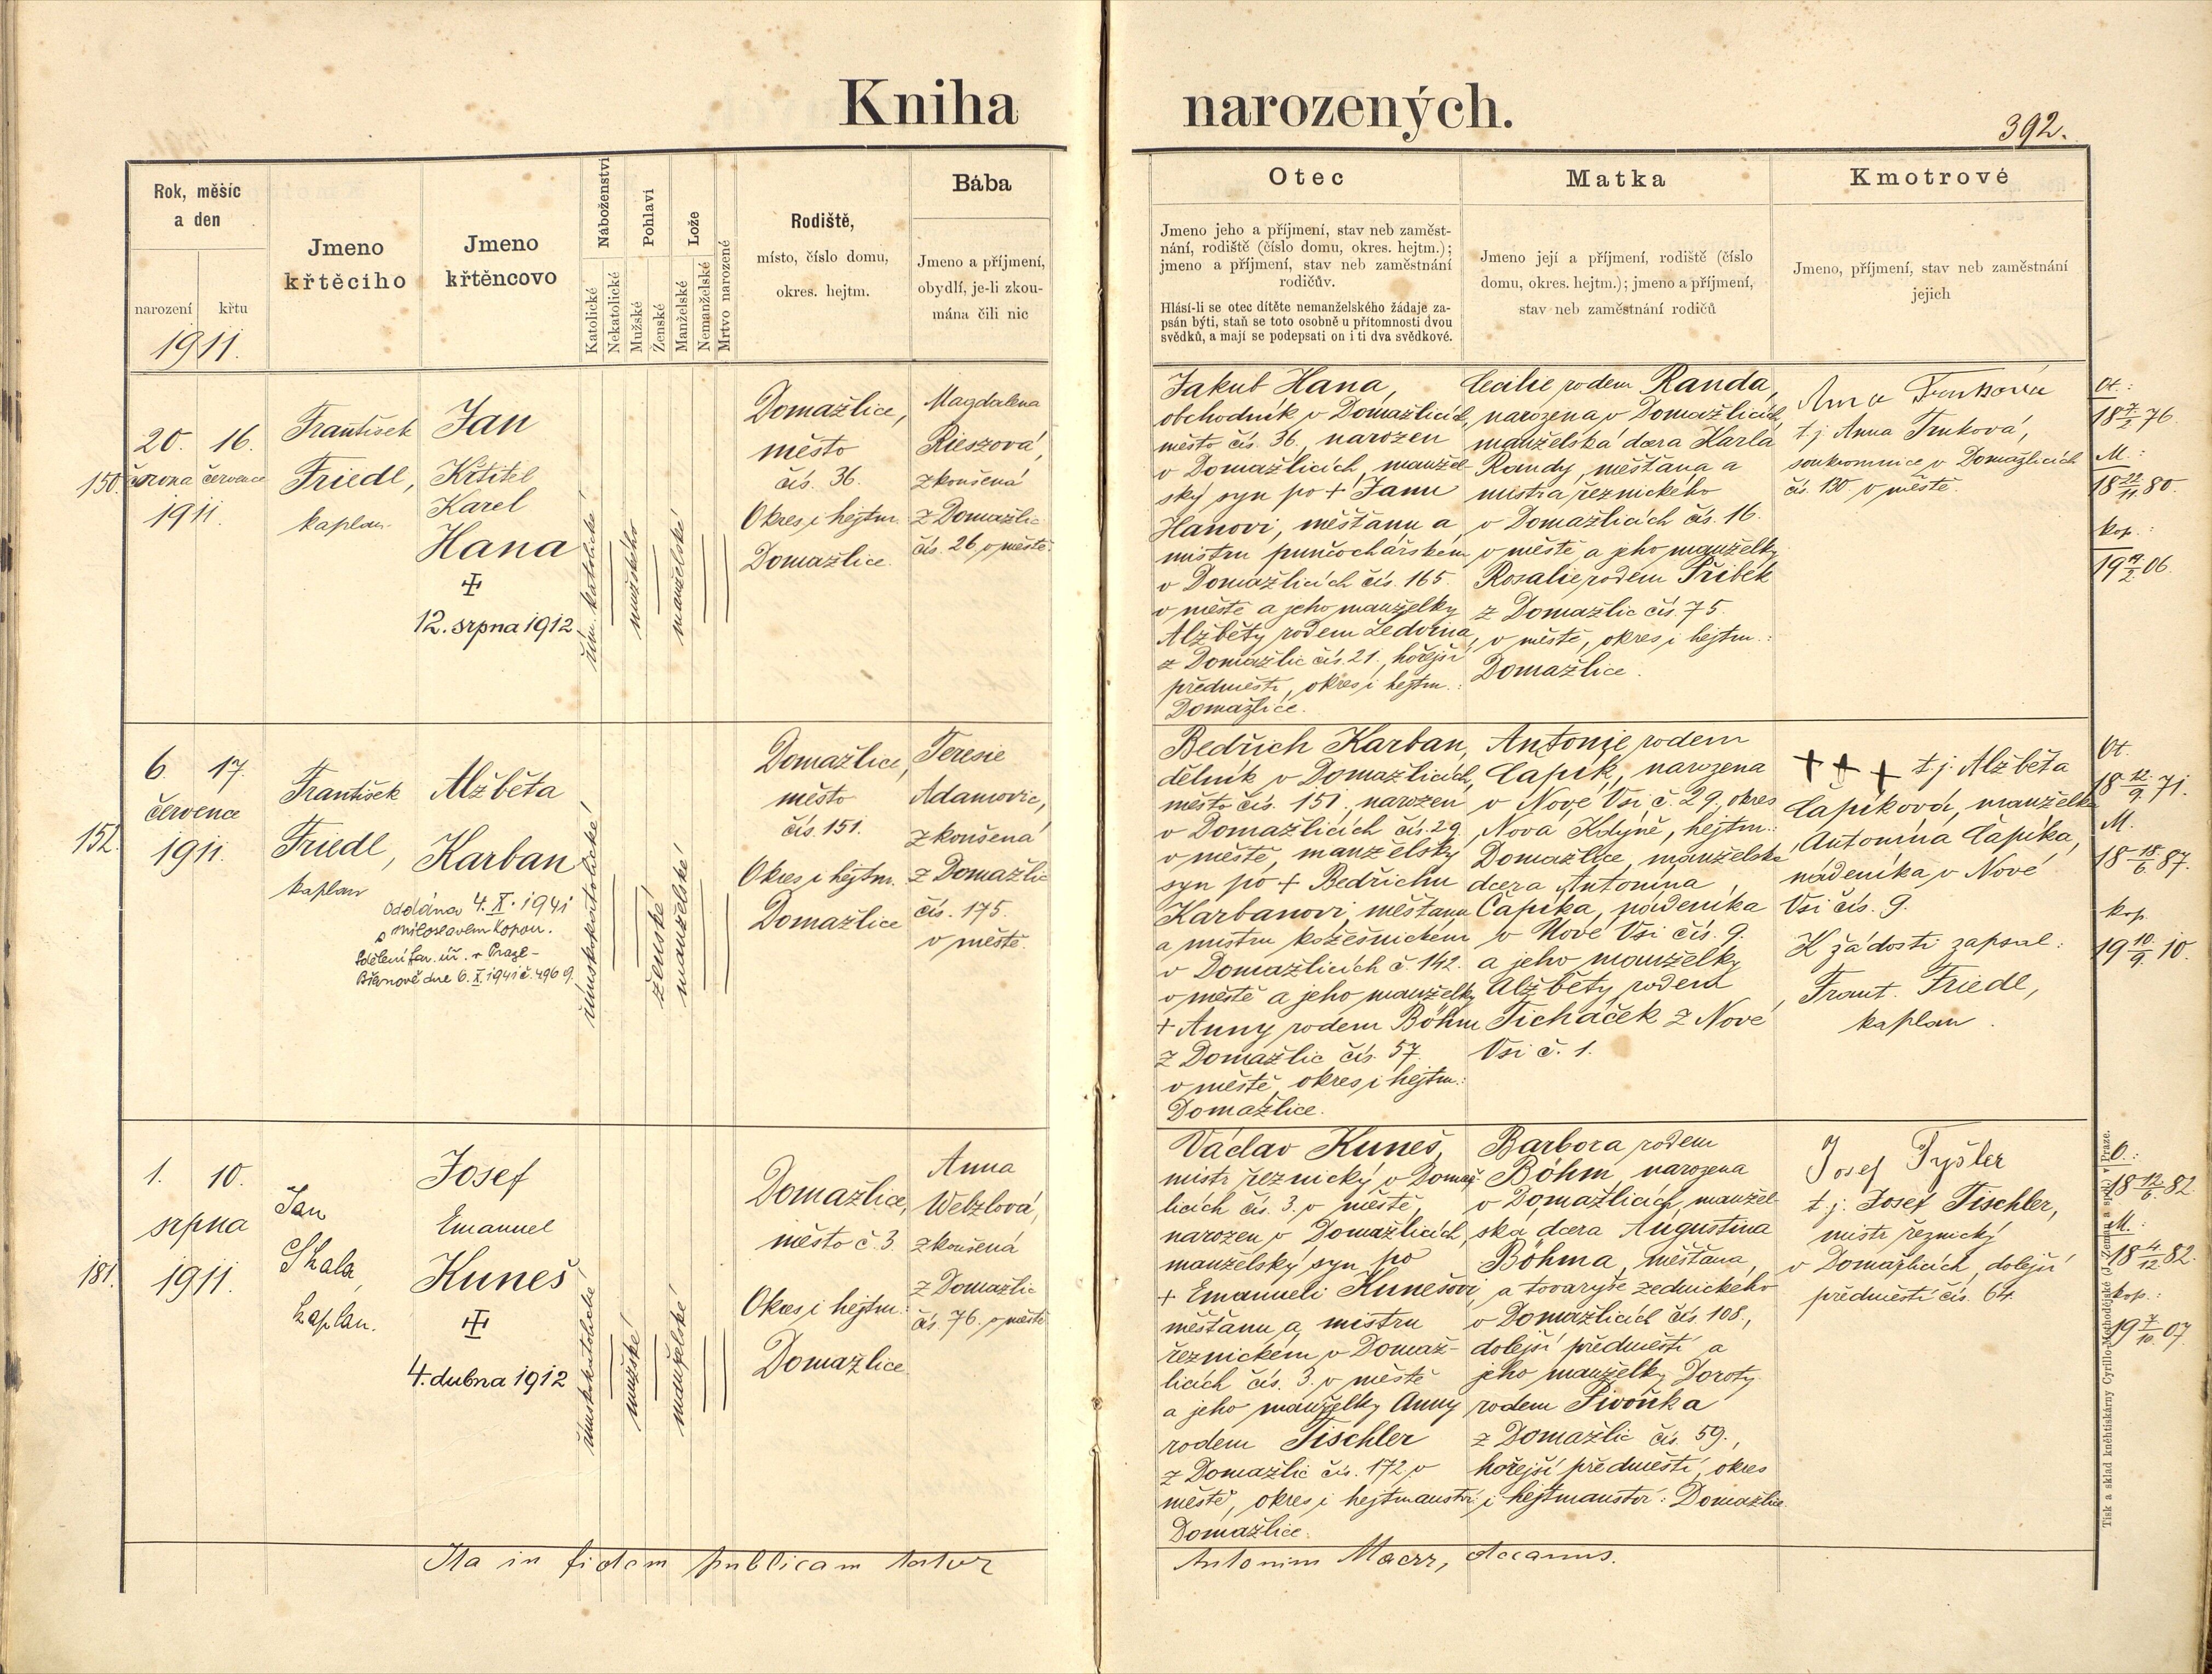 Kniha narozených.
392.
Rok, měsíc
a den
narození
křtu
1911.
Jmeno
křtěcího
Jmeno
křtěncovo
Náboženství
Katolické
Nekatolické
Pohlaví
Mužské
Ženské
Lože
Manželské
Nemanželské
Mrtvo narozené
Rodiště,
místo, číslo domu,
okres. hejtm.
Bába
Jmeno a příjmení,
obydlí, je-li zkou-
mána čili nic
Otec
Jmeno jeho a příjmení, stav neb zaměst-
nání, rodiště (číslo domu, okres. hejtm.);
jmeno a příjmení, stav neb zaměstnání
rodičův.
Hlásí-li se otec dítěte nemanželského žádaje za-
psán býti, staň se toto osobně u přítomnosti dvou
svědků, a mají se podepsati on i ti dva svědkové.
Matka
Jmeno její a příjmení, rodiště (číslo
domu, okres. hejtm.); jmeno a příjmení,
stav neb zaměstnání rodičů
Kmotrové
Jmeno, příjmení, stav neb zaměstnání
jejich
150.
20. 16.
června července
1911.
František
Friedl,
kaplan.
Jan
Křtitel
Karel
Hana
12. srpna 1912
řím. katolické
mužského
manželské
Domažlice,
město
čís. 36.
Okres i hejtm.
Domažlice.
Magdalena
Rieszová,
zkoušená
z Domažlic
čís. 26 v městě.
Jakub Hana,
obchodník v Domažlicích,
město čís. 36., narozen
v Domažlicích, manžel-
ský syn po + Janu
Hanovi, měšťanu a
mistru punčochářském
v Domažlicích čís. 165.
v městě a jeho manželky
Alžběty rodem Ledvina,
z Domažlic čís. 21., hořejší
předměstí, okres i hejtm.:
Domažlice.
Cecilie rodem Randa,
narozena v Domažlicích,
manželská dcera Karla
Randy, měšťana a
mistra řeznického
v Domažlicích čís. 16.
v městě a jeho manželky
Rosalie rodem Příbek
z Domažlic čís. 75.
v městě, okres i hejtm.:
Domažlice.
Anna Trnková
t. j. Anna Trnková,
soukromnice v Domažlicích
čís. 130. v městě.
Ot.:
18 7/2 76.
M.:
18 22/11 80.
kop.:
19 19/2 06.
152.
6. 17.
července
1911.
František
Friedl,
kaplan
Alžběta
Karban
Oddána 4. X. 1941
s Miloslavem Kopou.
Sdělení far. úř. v Praze-
Břevnově dne 6. X. 1941 č. 4969.
římskokatolické
ženské
manželské
Domažlice,
město
čís. 151.
Okres i hejtm.
Domažlice
Teresie
Adamovic,
zkoušená
z Domažlic
čís. 175.
v městě.
Bedřich Karban,
dělník v Domažlicích,
město čís. 151., narozen
v Domažlicích čís. 29.
v městě, manželský
syn po + Bedřichu
Karbanovi, měšťanu
a mistru kožešnickém
v Domažlicích č. 142.
v městě a jeho manželky
+ Anny rodem Böhm
z Domažlic čís. 57.
v městě, okres i hejtm.:
Domažlice.
Antonie rodem
Čapík, narozena
v Nové Vsi č. 29., okres
Nová Kdyně, hejtm.:
Domažlice, manželská
dcera Antonína
Čapíka, nádeníka
v Nové Vsi čís. 9.
a jeho manželky
Alžběty rodem
Ticháček z Nové
Vsi č. 1.
+ + + t. j. Alžběta
Čapíková, manželka
Antonína Čapíka,
nádeníka v Nové
Vsi čís. 9.
K žádosti zapsal:
Frant. Friedl,
kaplan.
Ot.
18 12/9 71.
M.
18 18/6 87.
kop.
19 10/9 10.
181.
1. 10.
srpna
1911.
Jan
Skala,
kaplan.
Josef
Emanuel
Kuneš
4. dubna 1912
římskokatolické
mužské
manželské
Domažlice,
město č. 3.
Okres i hejtm.:
Domažlice
Anna
Webzlová,
zkoušená
z Domažlic
čís. 76. v městě
Václav Kuneš,
mistr řeznický v Domaž-
licích čís. 3. v městě,
narozen v Domažlicích,
manželský syn po
+ Emanueli Kunešovi,
měšťanu a mistru
řeznickém v Domaž-
licích čís. 3. v městě
a jeho manželky Anny
rodem Tischler
z Domažlic čís. 172 v
městě, okres i hejtmanství:
Domažlice.
Barbora rodem
Böhm, narozena
v Domažlicích, manžel-
ská dcera Augustina
Böhma, měšťana,
a tovaryše zednického
v Domažlicích čís. 108.,
dolejší předměstí a
jeho manželky Doroty
rodem Pivoňka
z Domažlic čís. 59.,
hořejší předměstí, okres
i hejtmanství: Domažlice
Josef Tyšler
t. j. Josef Tischler,
mistr řeznický
v Domažlicích, dolejší
předměstí čís. 64.
O.:
18 12/6 82.
M.:
18 4/12 82.
kop.:
19 7/10 07.
Ita in fidem publicam
Antonim decanus.